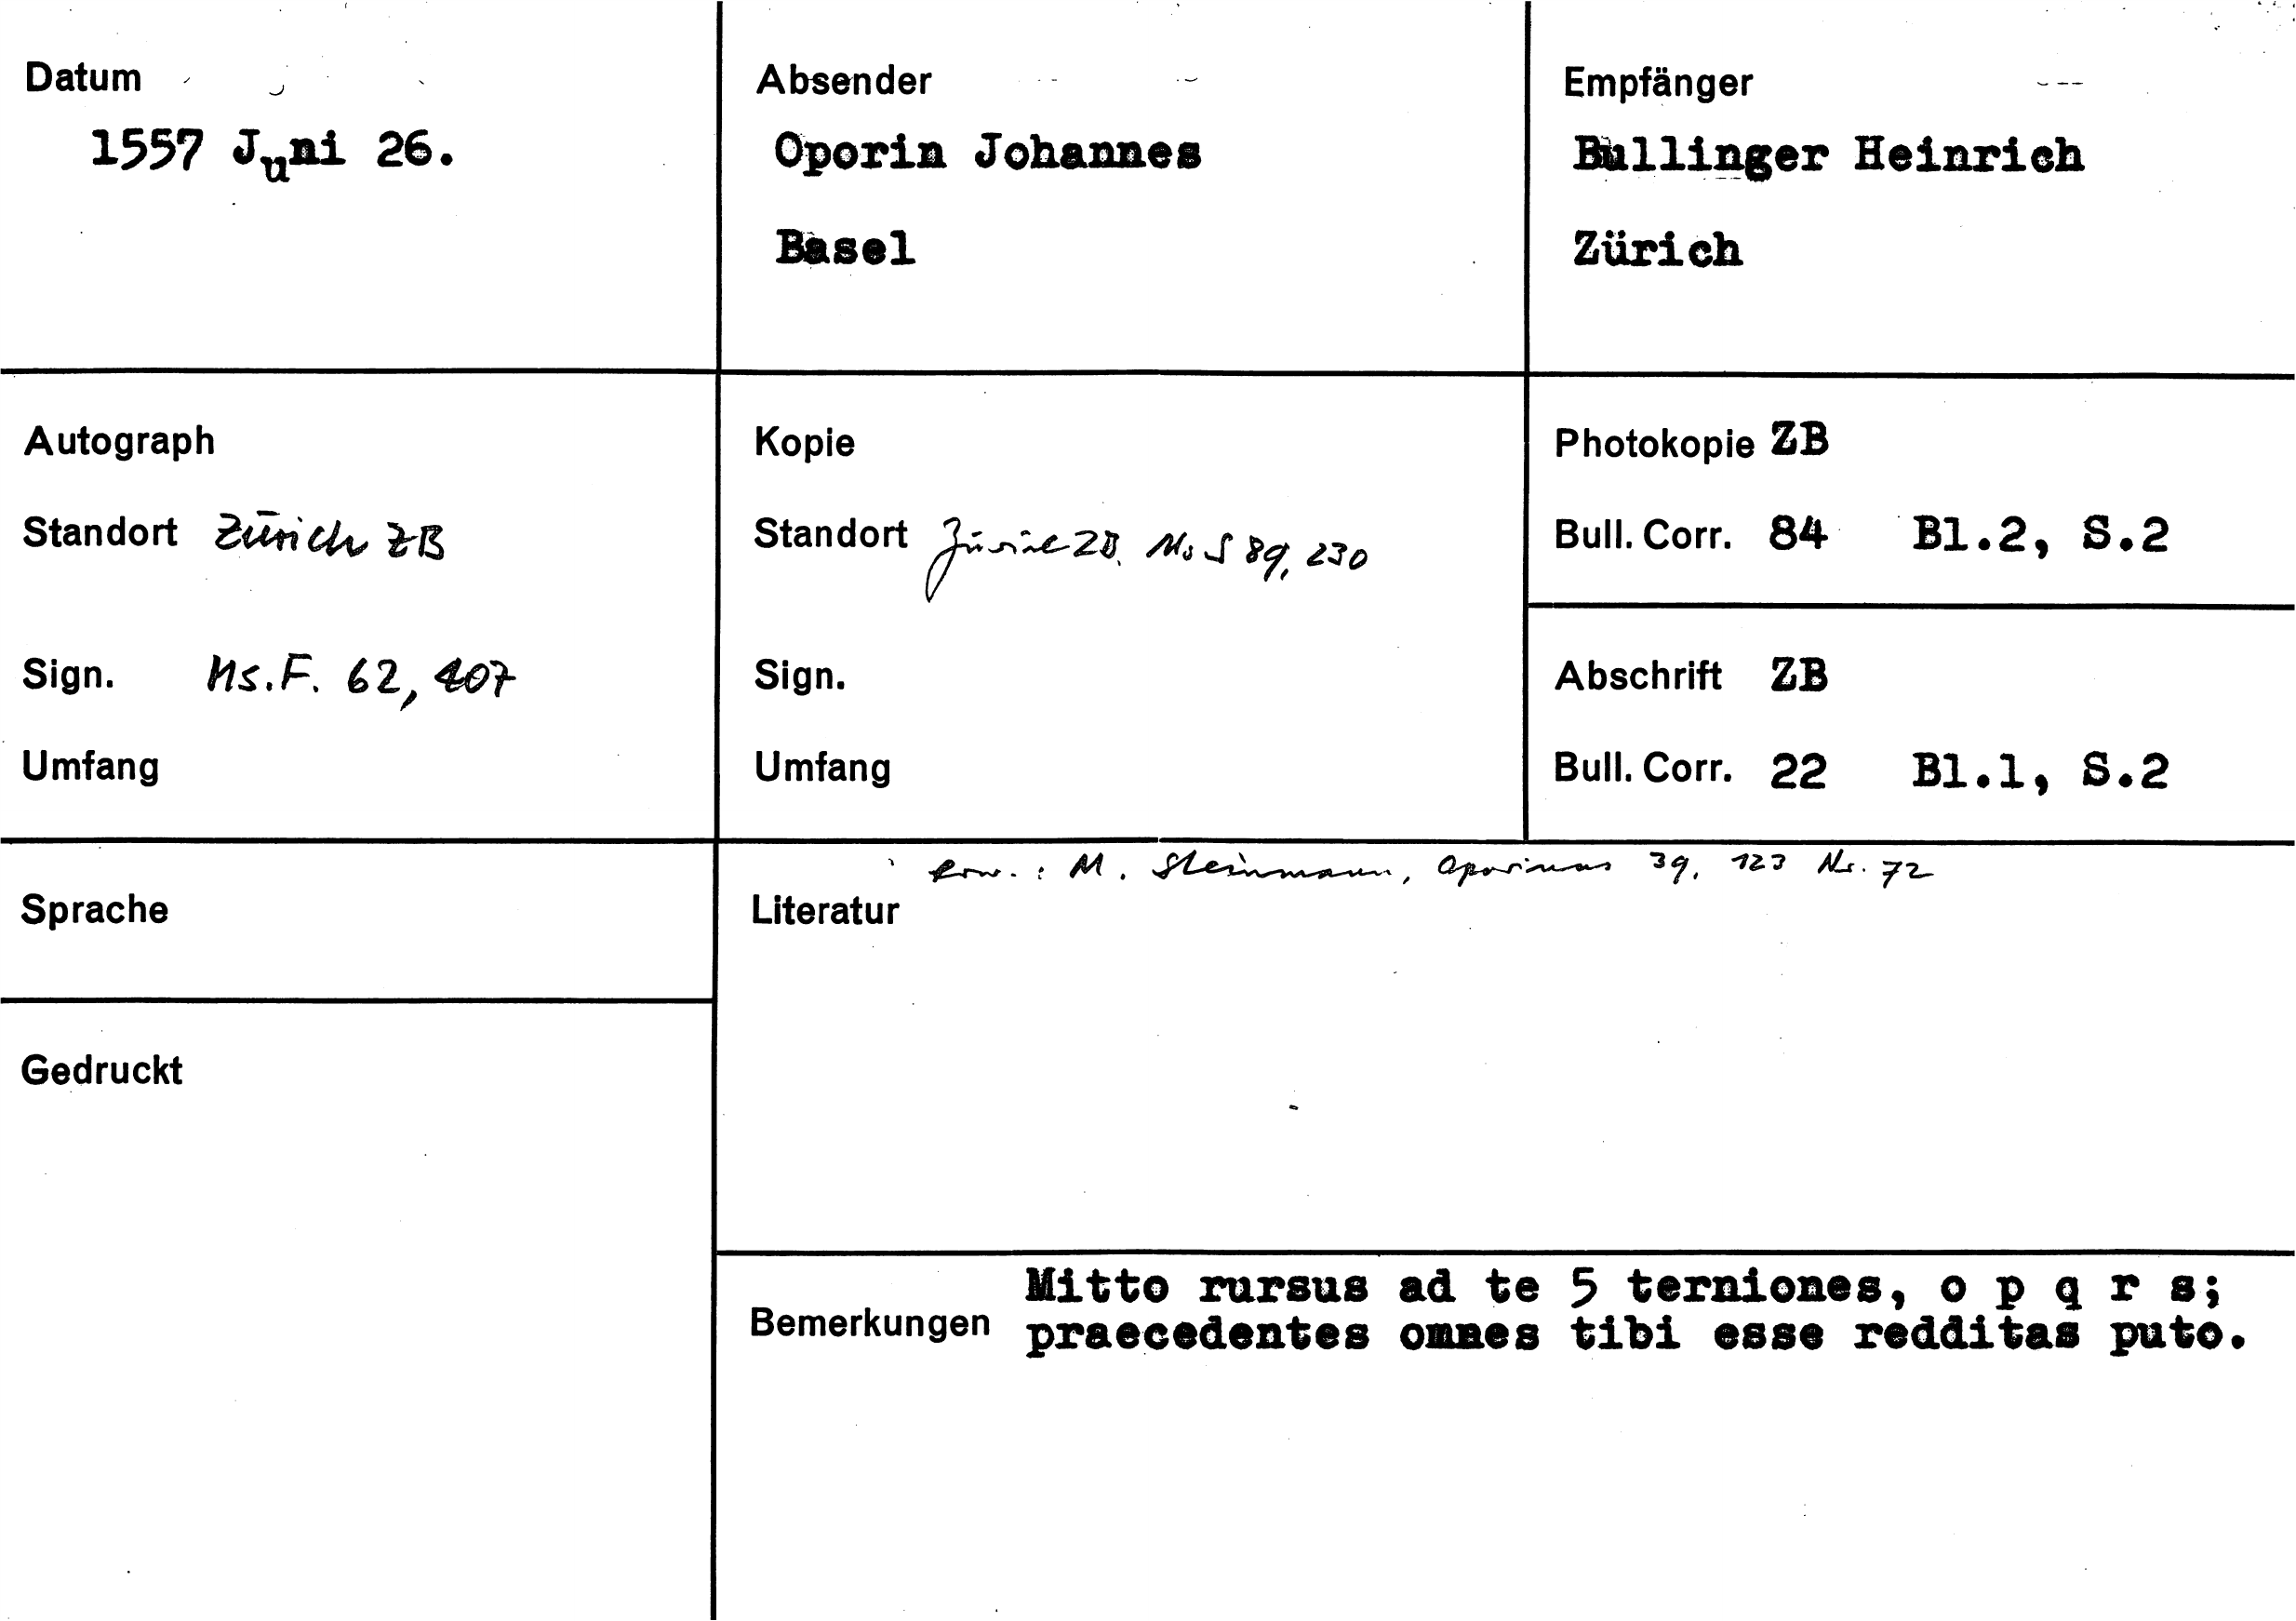 Datum
1557 Juni 26.
Absender
Oporin Johannes
Basel
Empfänger
Bullinger Heinrich
Zürich
Autograph
Standort Zürich ZB
Sign. Ms. F. 62, 407
Umfang
Kopie
Standort Zürich ZB. Ms S 89, 230
Sign.
Umfang
Photokopie ZB
Bull. Corr. 84 Bl.2, S.2
Abschrift ZB
Bull. Corr. 22 Bl.1, S.2
Sprache
Gedruckt
Literatur
: M. Steinmann, Oporinus 39, 123 Nr. 72
Bemerkungen
Mitto rursus ad te 5 terniones, o p q r s;
praecedentes omnes tibi esse redditas puto.